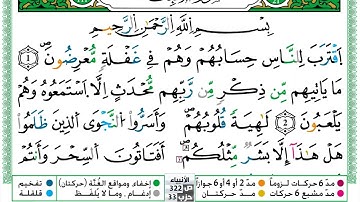 بِسْمِ ٱللَّهِ ٱلرَّحْمَٰنِ ٱلرَّحِيمِ
ٱقْتَرَبَ لِلنَّاسِ حِسَابُهُمْ وَهُمْ فِى غَفْلَةٍ مُّعْرِضُونَ ١
مَا يَأْتِيهِم مِّن ذِكْرٍ مِّن رَّبِّهِم مُّحْدَثٍ إِلَّا ٱسْتَمَعُوهُ وَهُمْ
يَلْعَبُونَ ٢ لَاهِيَةً قُلُوبُهُمْ وَأَسَرُّوا۟ ٱلنَّجْوَى ٱلَّذِينَ ظَلَمُوا۟
هَلْ هَٰذَآ إِلَّا بَشَرٌ مِّثْلُكُمْ أَفَتَأْتُونَ ٱلسِّحْرَ وَأَنتُمْ
مدّ 6 حركات لزوماً مدّ 2 أو 4 أو 6 جوازاً
مدّ مشبع 6 حركات مدّ حركتان
الأنبياء
ص 322
حزب 33
إخفاء، ومواقع الغُنَّة (حركتان)
إدغام، وما لا يُلفَظ
تفخيم
قلقلة